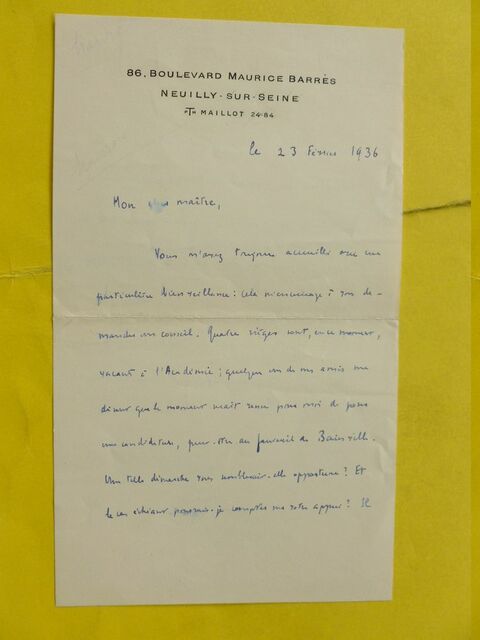 86, BOULEVARD MAURICE BARRÈS
NEUILLY-SUR-SEINE
TH MAILLOT 24-84
le 23 Février 1936
Mon maître,
Vous m'avez toujours accueilli avec une
particulière bienveillance : cela m'encourage à vous de-
mander un conseil. Quatre sièges sont, en ce moment,
vacants à l'Académie ; quelques uns de vos amis me
disent que le moment serait venu pour moi de poser
une candidature, peut-être au fauteuil de Bainville.
Une telle démarche vous semblerait-elle opportune ? Et
le cas échéant pourrais-je compter sur votre appui ? Je